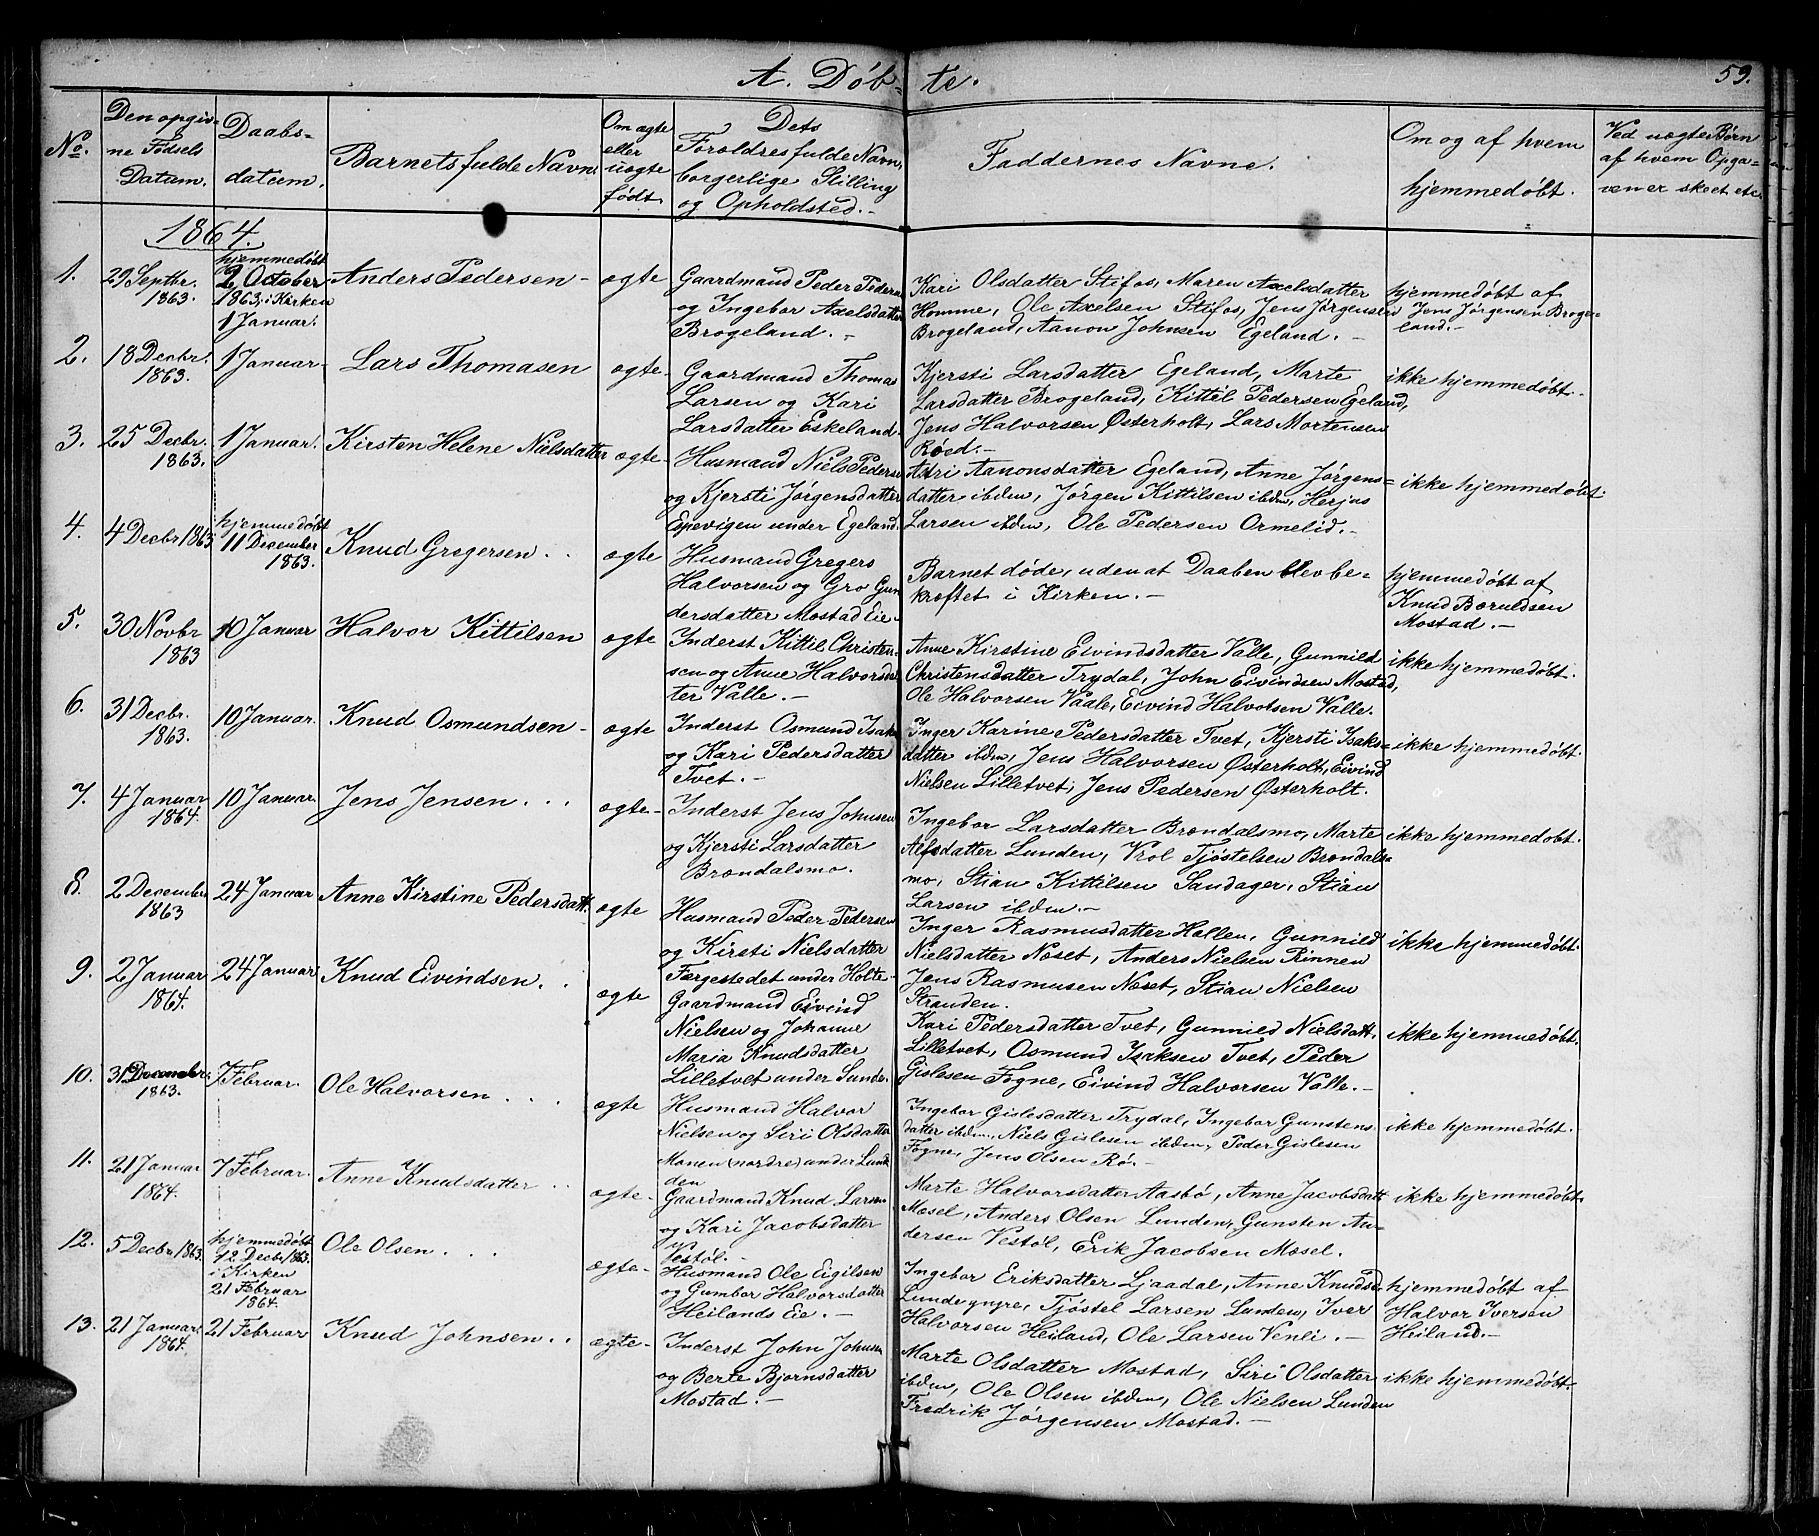 A. Döb- te. 59.
No. Den opgiv- Daabs- Barnets fulde Navn Om ægte Dets Faddernes Navne. Om og af hvem Ved uægte Børn
ne Fødsels datum. eller Forældres fulde Navn, hjemmedøbt. af hvem Opga-
Datum. uægte borgerlige Stilling ven er skeet etc.
født. og Opholdsted.-
1864.
1. 29 Septbr. 1863. hjemmedøbt 2 October 1863, i Kirken 1 Januar. Anders Pedersen - ægte
Gaardmand Peder Peders
og Ingebor Axelsdatter
Brogeland. -
Kari Olsdatter Stifos, Maren Axelsdatter
Homme, Ole Axelsen Stifos, Jens Jørgensen
Brogeland, Aanon Johnsen Egeland. -
hjemmedøbt af
Jens Jørgensen Broge-
land.-
2. 18 Decbr. 1863. 1 Januar- Lars Thomasen ægte-
Gaardmand Thomas
Larsen og Kari
Larsdatter Eskeland.
Kjersti Larsdatter Egeland, Marte
Larsdatter Brogeland, Kittil Pedersen Egeland,
Jens Halvorsen Østerholt, Lars Mortensen
Røed.-
ikke hjemmedøbt.
3. 25 Decbr. 1863. 1 Januar. Kirsten Helene Nielsdatter ægte-
Husmand Niels Peders
og Kjersti Jørgensdatter
Espevigen under Egeland.
Adri Aanonsdatter Egeland, Anne Jørgens-
datter ibdm, Jørgen Kittilsen ibdm, Herjus
Larsen ibdm, Ole Pedersen Ormelid.-
ikke hjemmedøbt.
4. 4 Decbr 1863 hjemmedøbt 11 December 1863. Knud Gregersen . . ægte
Husmand Gregers
Halvorsen og Gro Gun
dersdatter Mostad Eie.
Barnet døde, uden at Daaben blev be-
kræftet i Kirken.-
hjemmedøbt af
Knud Boruldsen
Mostad.-
5. 30 Novbr 1863 10 Januar Halvor Kittilsen ægte
Inderst Kittil Christen-
sen og Anne Halvorsdat
ter Valle.-
Anne Kirstine Eivindsdatter Valle, Gunnild
Christensdatter Trydal, John Eivindsen Mostad,
Ole Halvorsen Vaale, Eivind Halvorsen Valle.
ikke hjemmedøbt.
6. 31 Decbr. 1863. 10 Januar. Knud Osmundsen - ægte
Inderst Osmund Isak
og Kari Pedersdatter
Tvet.-
Inger Karine Pedersdatter Tvet, Kjersti Isaks-
datter ibdm, Jens Halvorsen Østerholt, Eivind
Nielsen Lilletvet, Jens Pedersen Østerholt.
ikke hjemmedøbt.
7. 4 Januar 1864. 10 Januar. Jens Jensen . . . ægte-
Inderst Jens Johnsen
og Kjersti Larsdatter
Brændalsmo.
Ingebor Larsdatter Brændalsmo, Marte
Alfsdatter Lunden, Vrol Tjøstelsen Brændals-
mo, Stian Kittilsen Sandager, Stian
Larsen ibdm.-
ikke hjemmedøbt.
8. 2 December 1863 24 Januar Anne Kirstine Pedersdatt. ægte
Husmand Peder Pedersen
og Kirsti Nielsdatter
Færgestedet under Holte-
Inger Rasmusdatter Hallen, Gunnild
Nielsdatter Næset, Anders Nielsen Rinnen
Jens Rasmusen Næset, Stian Nielsen
Stranden.
ikke hjemmedøbt.
9. 2 Januar 1864. 24 Januar Knud Eivindsen . . ægte
Gaardmand Eivind
Nielsen og Johanne
Maria Knudsdatter
Lilletvet under Sunde.
Kari Pedersdatter Tvet, Gunnild Nielsdatt.
Lilletvet, Osmund Isaksen Tvet, Peder
Gislesen Fogne, Eivind Halvorsen Valle.-
ikke hjemmedøbt.
10. 31 December 1863. 7 Februar. Ole Halvorsen . . . ægte
Husmand Halvor
Nielsen og Siri Olsdatter
Monen (nordre) under Lun
den
Ingebor Gislesdatter Trydal, Ingebor Gunstens-
datter ibdm, Niels Gislesen ibdm, Peder Gislesen
Fogne, Jens Olsen Rø.-
ikke hjemmedøbt.
11. 21 Januar 1864. 7 Februar. Anne Knudsdatter . . ægte-
Gaardmand Knud Larsen
og Kari Jacobsdatter
Vestøl.-
Marte Halvorsdatter Aasbø, Anne Jacobsdatt
Mæsel, Anders Olsen Lunden, Gunsten An-
dersen Vestøl, Erik Jacobsen Mæsel.
ikke hjemmedøbt.
12. 5 Decbr 1863. hjemmedøbt 12 Decbr 1863. i Kirken 21 Februar 1864. Ole Olsen . . . ægte-
Husmand Ole Eigilsen
og Gumbor Halvorsdatter
Heilands Eie.-
Ingebor Eriksdatter Ljaadal, Anne Knudsd.
Lunde yngre, Tjøstel Larsen Lunden, Iver
Halvorsen Heiland, Ole Larsen Venli.-
hjemmedøbt af
Halvor Iversen
Heiland.-
13. 21 Januar 1864. 21 Februar Knud Johnsen . . ægte-
Inderst John Johnsen
og Berte Bjornsdatter
Mostad.-
Marte Olsdatter Mostad, Siri Olsdatter
ibdm, Ole Olsen ibdm, Ole Nielsen Lunden
Fredrik Jørgensen Mostad.-
ikke hjemmedøbt.